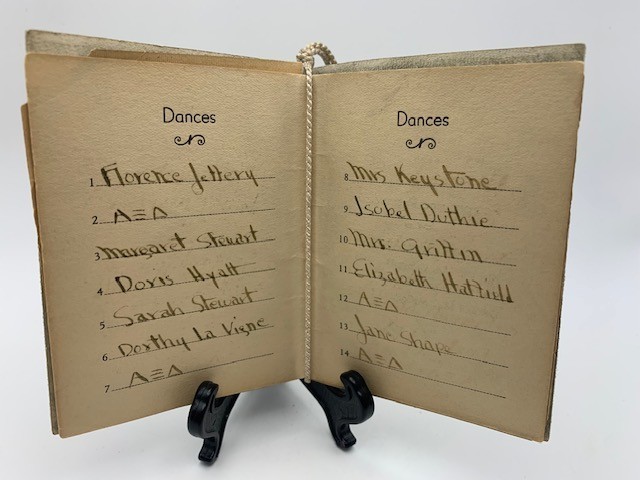 Dances
1 Florence Jeffery
2 ΛΞΛ
3 Margaret Stewart
4 Doris Hyatt
5 Sarah Stewart
6 Dorthy La Vigne
7 ΛΞΛ
Dances
8 Mrs Keystone
9 Isobel Duthie
10 Mrs. Griffin
11 Elizabeth Hatfield
12 ΛΞΛ
13 Jane Shape
14 ΛΞΛ